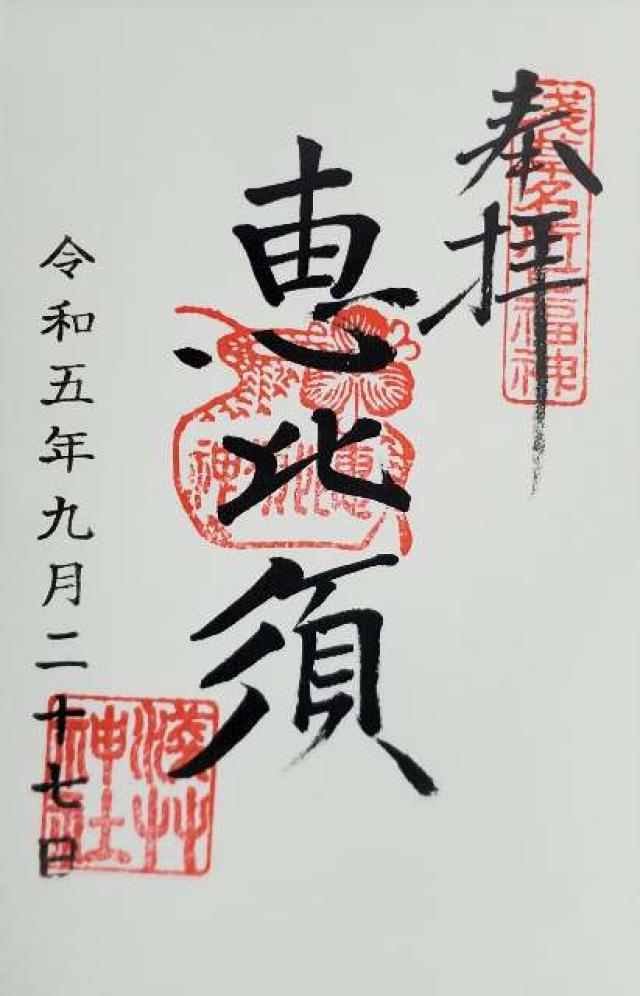 奉拝
浅草名所七福神
恵比須
恵比須神
令和五年九月二十七日
浅草神社